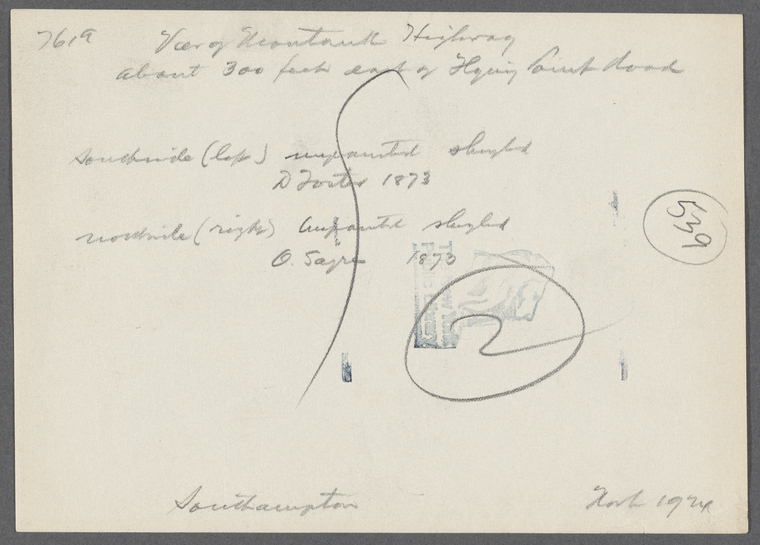 761a View of Montauk Highway
about 300 feet east of Flying Point Road
southside (left) unpainted shingled
D Foster 1873
northside (right) unpainted shingled
O. Sayre 1873
539
The New York
Public Library
2
Southampton 1924